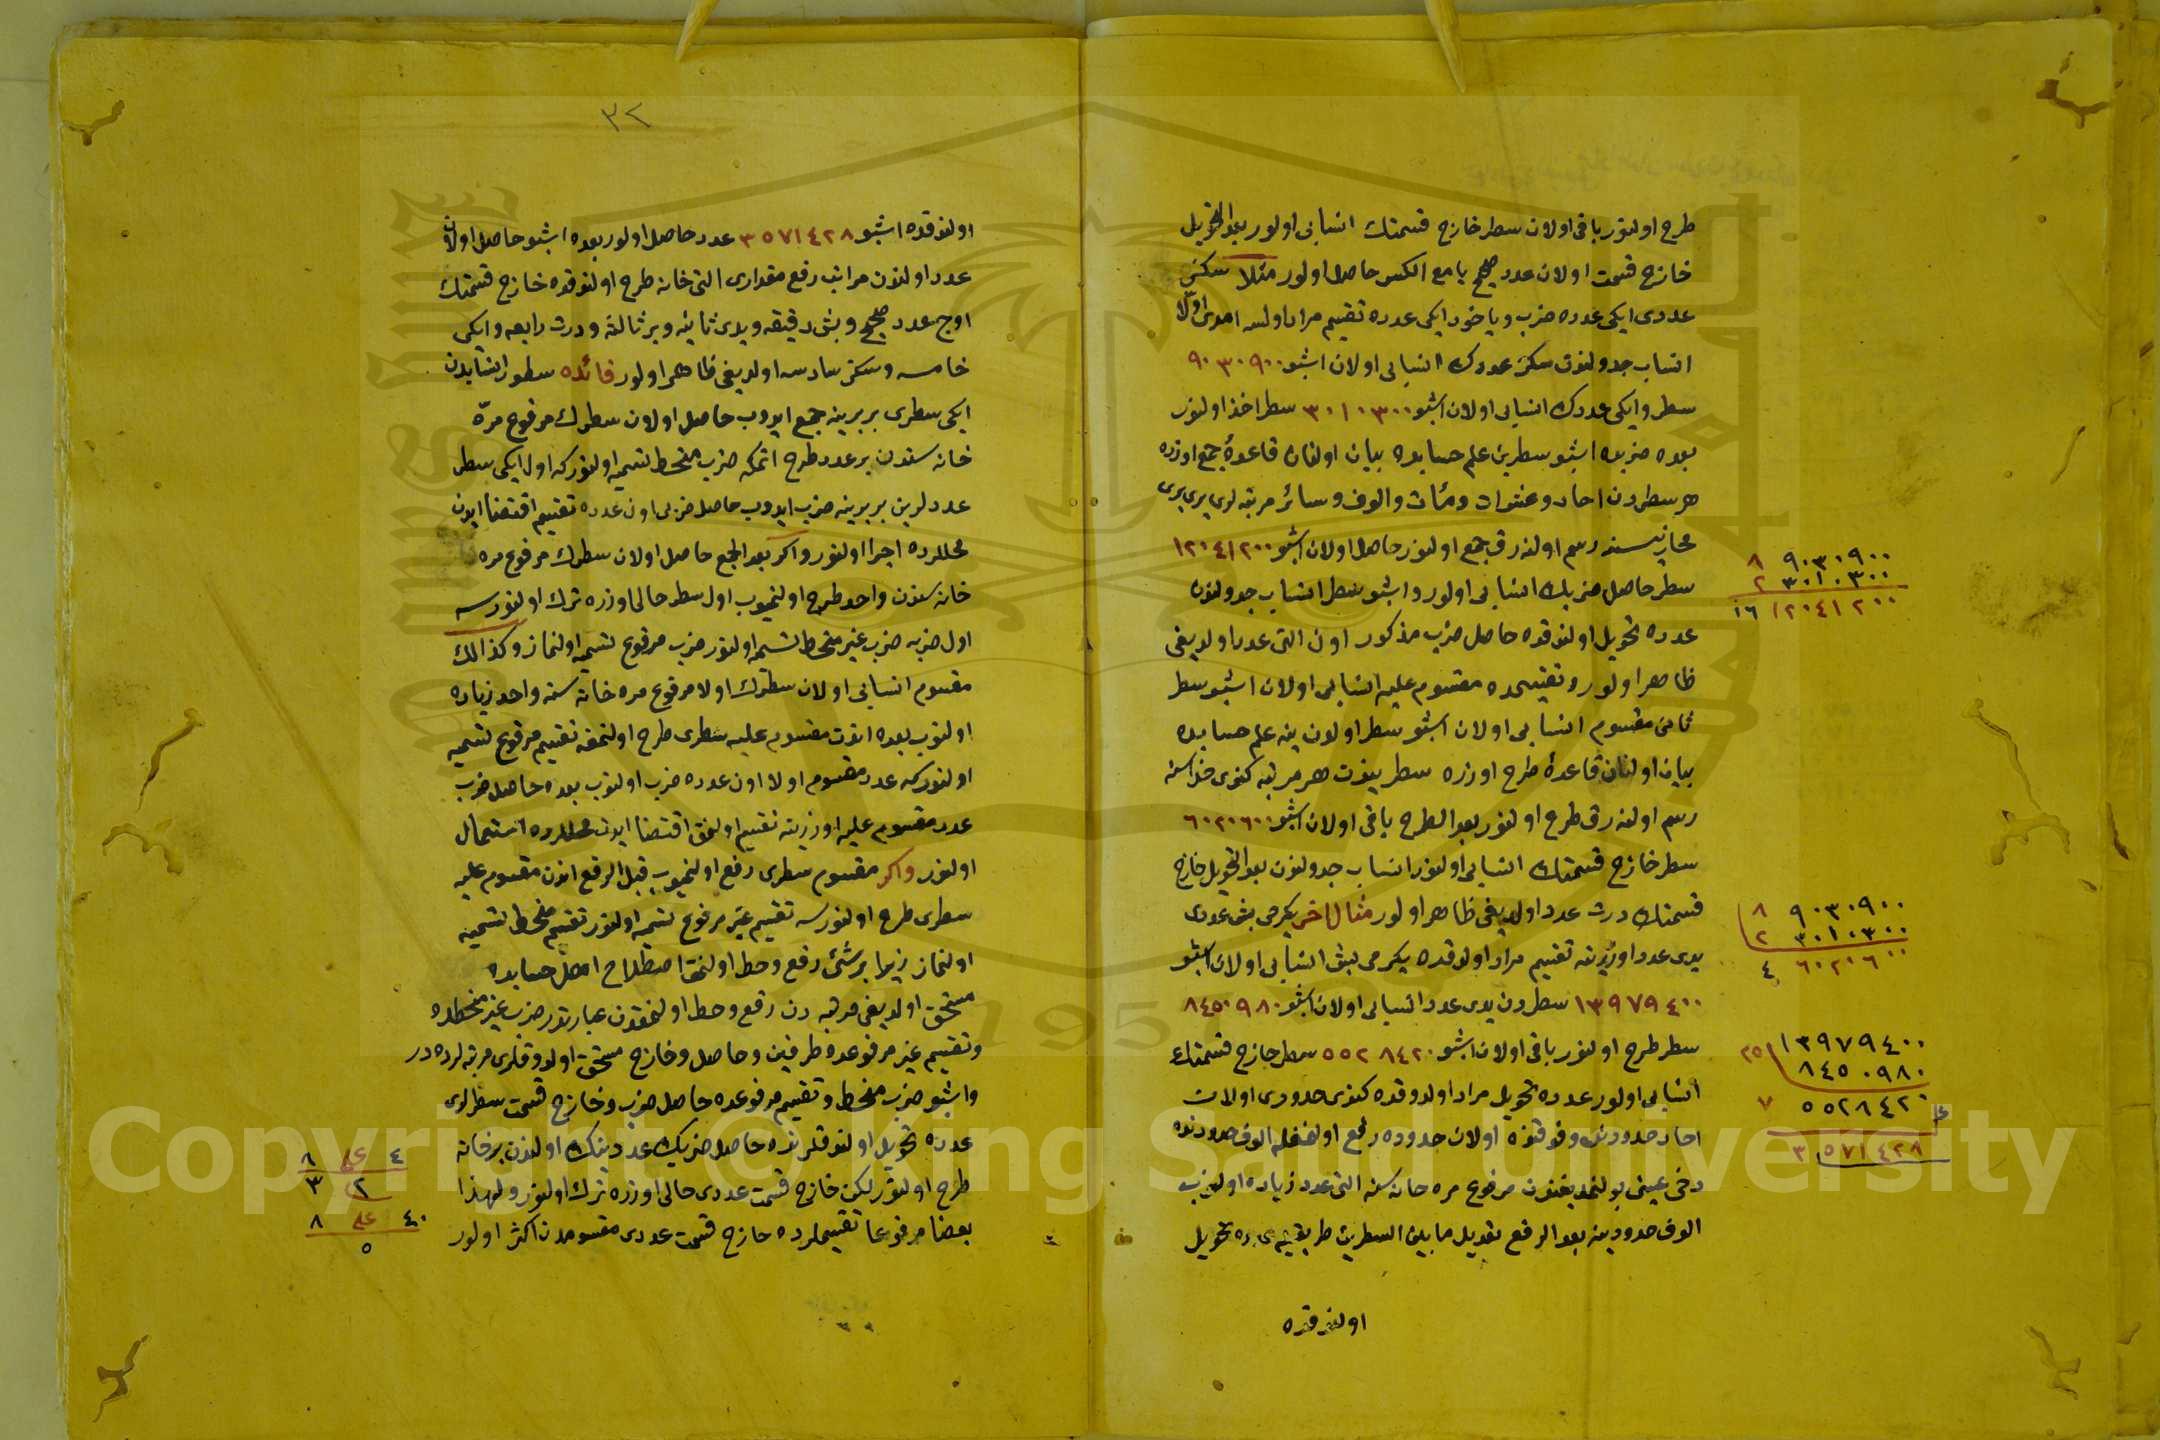 طرح اولنور باقی اولان سطر خارج قسمتك انسابی اولور بعد التحویل
خارج قسمت اولان عدد صحیح یا مع الكسر حاصل اولور مثلا سكز
عددی ایكی عدده ضرب ویاخود ایكی عدده تقسیم مراد اولسه اولا
انساب جدولندن سكز عددك انسابی اولان اشبو ٩٠٣٠٩٠٠
سطر و ایكی عددك انسابی اولان اشبو ٣٠١٠٣٠٠ سطر اخذ اولنور
بعده ضربده اشبو سطرین علم حسابده بیان اولنان قاعدهٔ جمع اوزره
هر سطردن احاد وعشرات ومئات والوف وسائر مرتبه لری بری بری
محاذیسنه رسم اولنه رق جمع اولنور حاصل اولان اشبو ١٢٠٤١٢٠٠
سطر حاصل ضربك انسابی اولور واشبو سطر انساب جدولندن
عدده تحویل اولندقده حاصل ضرب مذكور اون التی عدد اولدیغی
ظاهر اولور وتقسیمده مقسوم علیه انسابی اولان اشبو سطر
ثانی مقسوم انسابی اولان اشبو سطر اولدن ینه علم حسابده
بیان اولنان قاعدهٔ طرح اوزره سطرینك هر مرتبه كندی حذاسنه
رسم اولنه رق طرح اولنور بعد الطرح باقی اولان اشبو ٦٠٢٠٦٠٠
سطر خارج قسمتك انسابی اولنور انساب جدولندن بعد التحویل خارج
قسمتك درت عدد اولدیغی ظاهر اولور مثال اخر یكرمی بش عددی
یدی عدد اوزرینه تقسیم مراد اولدقده یكرمی بش انسابی اولان اشبو
١٣٩٧٩٤٠٠ سطردن یدی عدد انسابی اولان اشبو ٨٤٥٠٩٨٠
سطر طرح اولنور باقی اولان اشبو ٥٥٢٨٤٢٠ سطر خارج قسمتك
انسابی اولور عدده تحویل مراد اولدقده كندی حدودی اولان
احاد حدودنك وفوقنده اولان حدوده رفع اولنمغله الوف حدودنده
دخی عینی بولنمدیغندن مرفوع مره خانه سنه التی عدد زیاده اولنوب
الوف حدودینه بعد الرفع تعدیل مابین السطرین طریقیله عدده تحویل
اولندقده
٨ ٩٠٣٠٩٠٠
٢ ٣٠١٠٣٠٠
١٦ ١٢٠٤١٢٠٠
٨ ٩٠٣٠٩٠٠
٢ ٣٠١٠٣٠٠
٤ ٦٠٢٠٦٠٠
٢٥ ١٣٩٧٩٤٠٠
٨٤٥٠٩٨٠
٧ ٥٥٢٨٤٢٠
٣٥٧١٤٢٨
٣٢
اولندقده اشبو ٣٥٧١٤٢٨ عدد حاصل اولور بعده اشبو حاصل اولان
عدد اولندن مراتب رفع مقداری التی خانه طرح اولندقده خارج قسمتك
اوج عدد صحیح وبش دقیقه ویدی ثانیه وبر ثالثه ودرت رابعه وایكی
خامسه وسكز سادسه اولدیغی ظاهر اولور فائده سطور انسابدن
ایكی سطری بربرینه جمع ایدوب حاصل اولان سطرك مرفوع مرّه
خانه سندن بر عدد طرح اتمكه ضرب منحط تسمیه اولنور كه اول ایكی سطر
عددلرین بربرینه ضرب ایدوب حاصل ضربی اون عدده تقسیم اقتضا ایدن
محللرده اجرا اولنور واكر بعد الجمع حاصل اولان سطرك مرفوع مره
خانه سندن واحد طرح اولنمیوب اول سطر حالی اوزره ترك اولنورسه
اول ضربه ضرب غیر منحط تسمیه اولنور ضرب مرفوع تسمیه اولنماز وكذالك
مقسوم انسابی اولان سطرك اولا مرفوع مره خانه سنه واحد زیاده
اولنوب بعده اندن مقسوم علیه سطری طرح اولنمغه تقسیم مرفوع تسمیه
اولنور كه عدد مقسوم اولا اون عدده ضرب اولنوب بعده حاصل ضرب
عدد مقسوم علیه اوزرینه تقسیم اولنمق اقتضا ایدن محللرده استعمال
اولنور واكر مقسوم سطری رفع اولنمیوب قبل الرفع اندن مقسوم علیه
سطری طرح اولنورسه تقسیم غیر مرفوع تسمیه اولنور تقسیم منحط تسمیه
اولنماز زیرا بر شئ رفع وحط اولنمق اصطلاح اهل حسابده
مستحق اولدیغی مرتبه دن رفع وحط اولنمقدن عبارتدر ضرب غیر منحطده
وتقسیم غیر مرفوعده طرفین وحاصل وخارج مستحق اولدوقلری مرتبه لرده در
واشبو ضرب منحط وتقسیم مرفوعده حاصل ضرب وخارج قسمت سطرلری
عدده تحویل اولندقلرنده حاصل ضربك عددینك اولندن بر خانه
طرح اولنور لكن خارج قسمت عددی حالی اوزره ترك اولنور ولهذا
بعضا مرفوعا تقسیملرده خارج قسمت عددی مقسومدن اكثر اولور
٨ علی ٤
٣ ٢
٨ علی ٤٠
٥
Copyright © King Saud University
1957